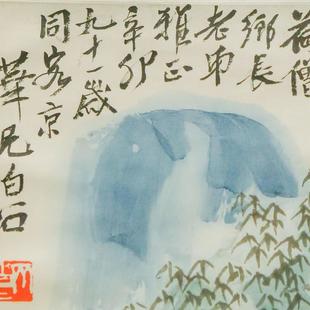 僧
鄉長
老弟
雅正
辛卯
九十一歲
同客京
華兄白石